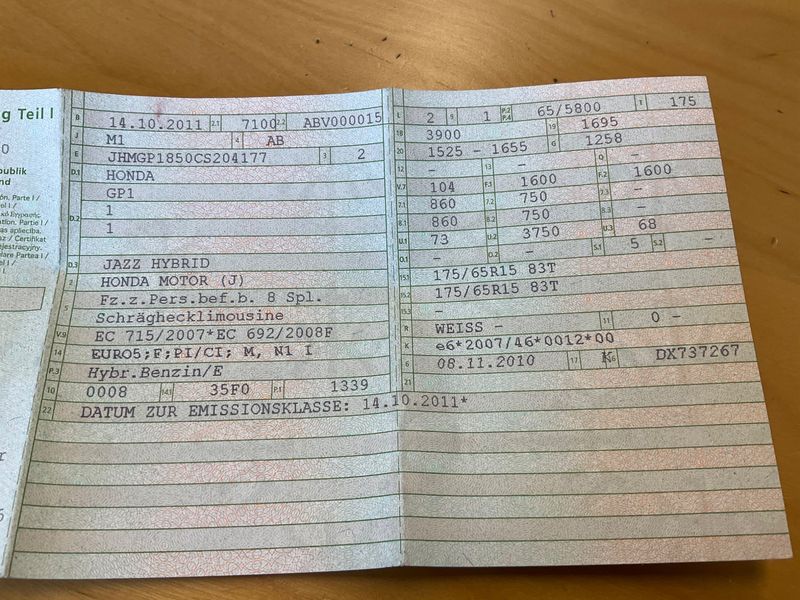 g Teil I
0
publik
nd
ión. Parte I /
el I /
ation. Partie I /
as apliecība.
az / Certifikat
ejestracyjny.
lare Partea I /
el I /
r
B 14.10.2011 2.1 7100 2.2 ABV000015
J M1 4 AB
E JHMGP1850CS204177 3 2
D.1 HONDA
D.2 GP1
1
1
D.3 JAZZ HYBRID
2 HONDA MOTOR (J)
5 Fz.z.Pers.bef.b. 8 Spl.
Schräghecklimousine
V.9 EC 715/2007*EC 692/2008F
14 EURO5;F;PI/CI; M, N1 I
P.3 Hybr.Benzin/E
10 0008 14.1 35F0 P.1 1339
22 DATUM ZUR EMISSIONSKLASSE: 14.10.2011*
L 2 9 1 P.2 P.4 65/5800 T 175
18 3900 19 1695
20 1525 - 1655 G 1258
12 - 13 - Q -
V.7 104 F.1 1600 F.2 1600
7.1 860 7.2 750 7.3 -
8.1 860 8.2 750 8.3 -
U.1 73 U.2 3750 U.3 68
O.1 - O.2 - S.1 5 S.2
15.1 175/65R15 83T
15.2 175/65R15 83T
15.3 -
R WEISS - 11 0 -
K e6*2007/46*0012*00
6 08.11.2010 17 K 16 DX737267
21